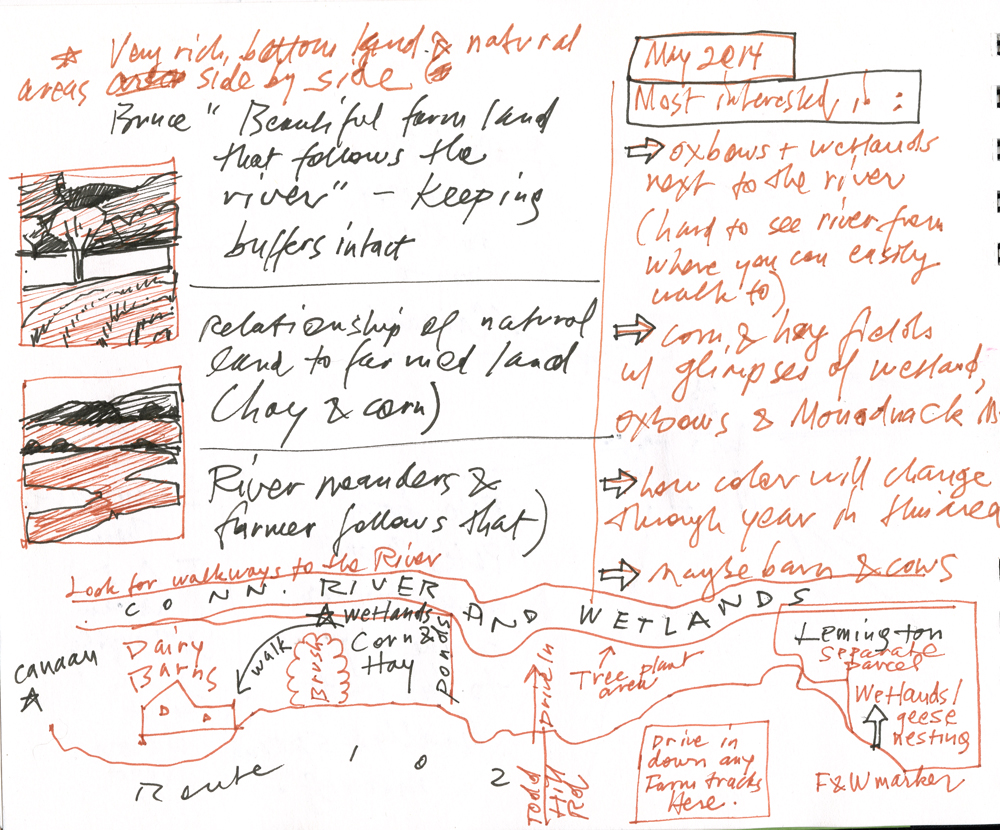 * Very rich, bottom land & natural
areas side by side
Bruce "Beautiful farm land
that follows the
river" - Keeping
buffers intact
Relationship of natural
land to farmed land
(hay & corn)
River meanders &
farmer follows that)
May 2014
Most interested in:
⇒ oxbows + wetlands
next to the river
(hard to see river from
where you can easily
walk to)
⇒ corn & hay fields
w/ glimpses of wetland,
oxbows & Monadnack
⇒ how color will change
through year in this area
⇒ maybe barn & cows
Look for walkways to the River
CONN. RIVER AND WETLANDS
canaan
Dairy
Barns
walk
Brush
wetlands
Corn &
Hay
ponds
Drive In
Tree plant
area
Lemington
separate
parcel
Wetlands/
geese
nesting
F&W marker
Drive in
down any
Farm tracks
Here.
Todd
Hill
Rd
Route 102